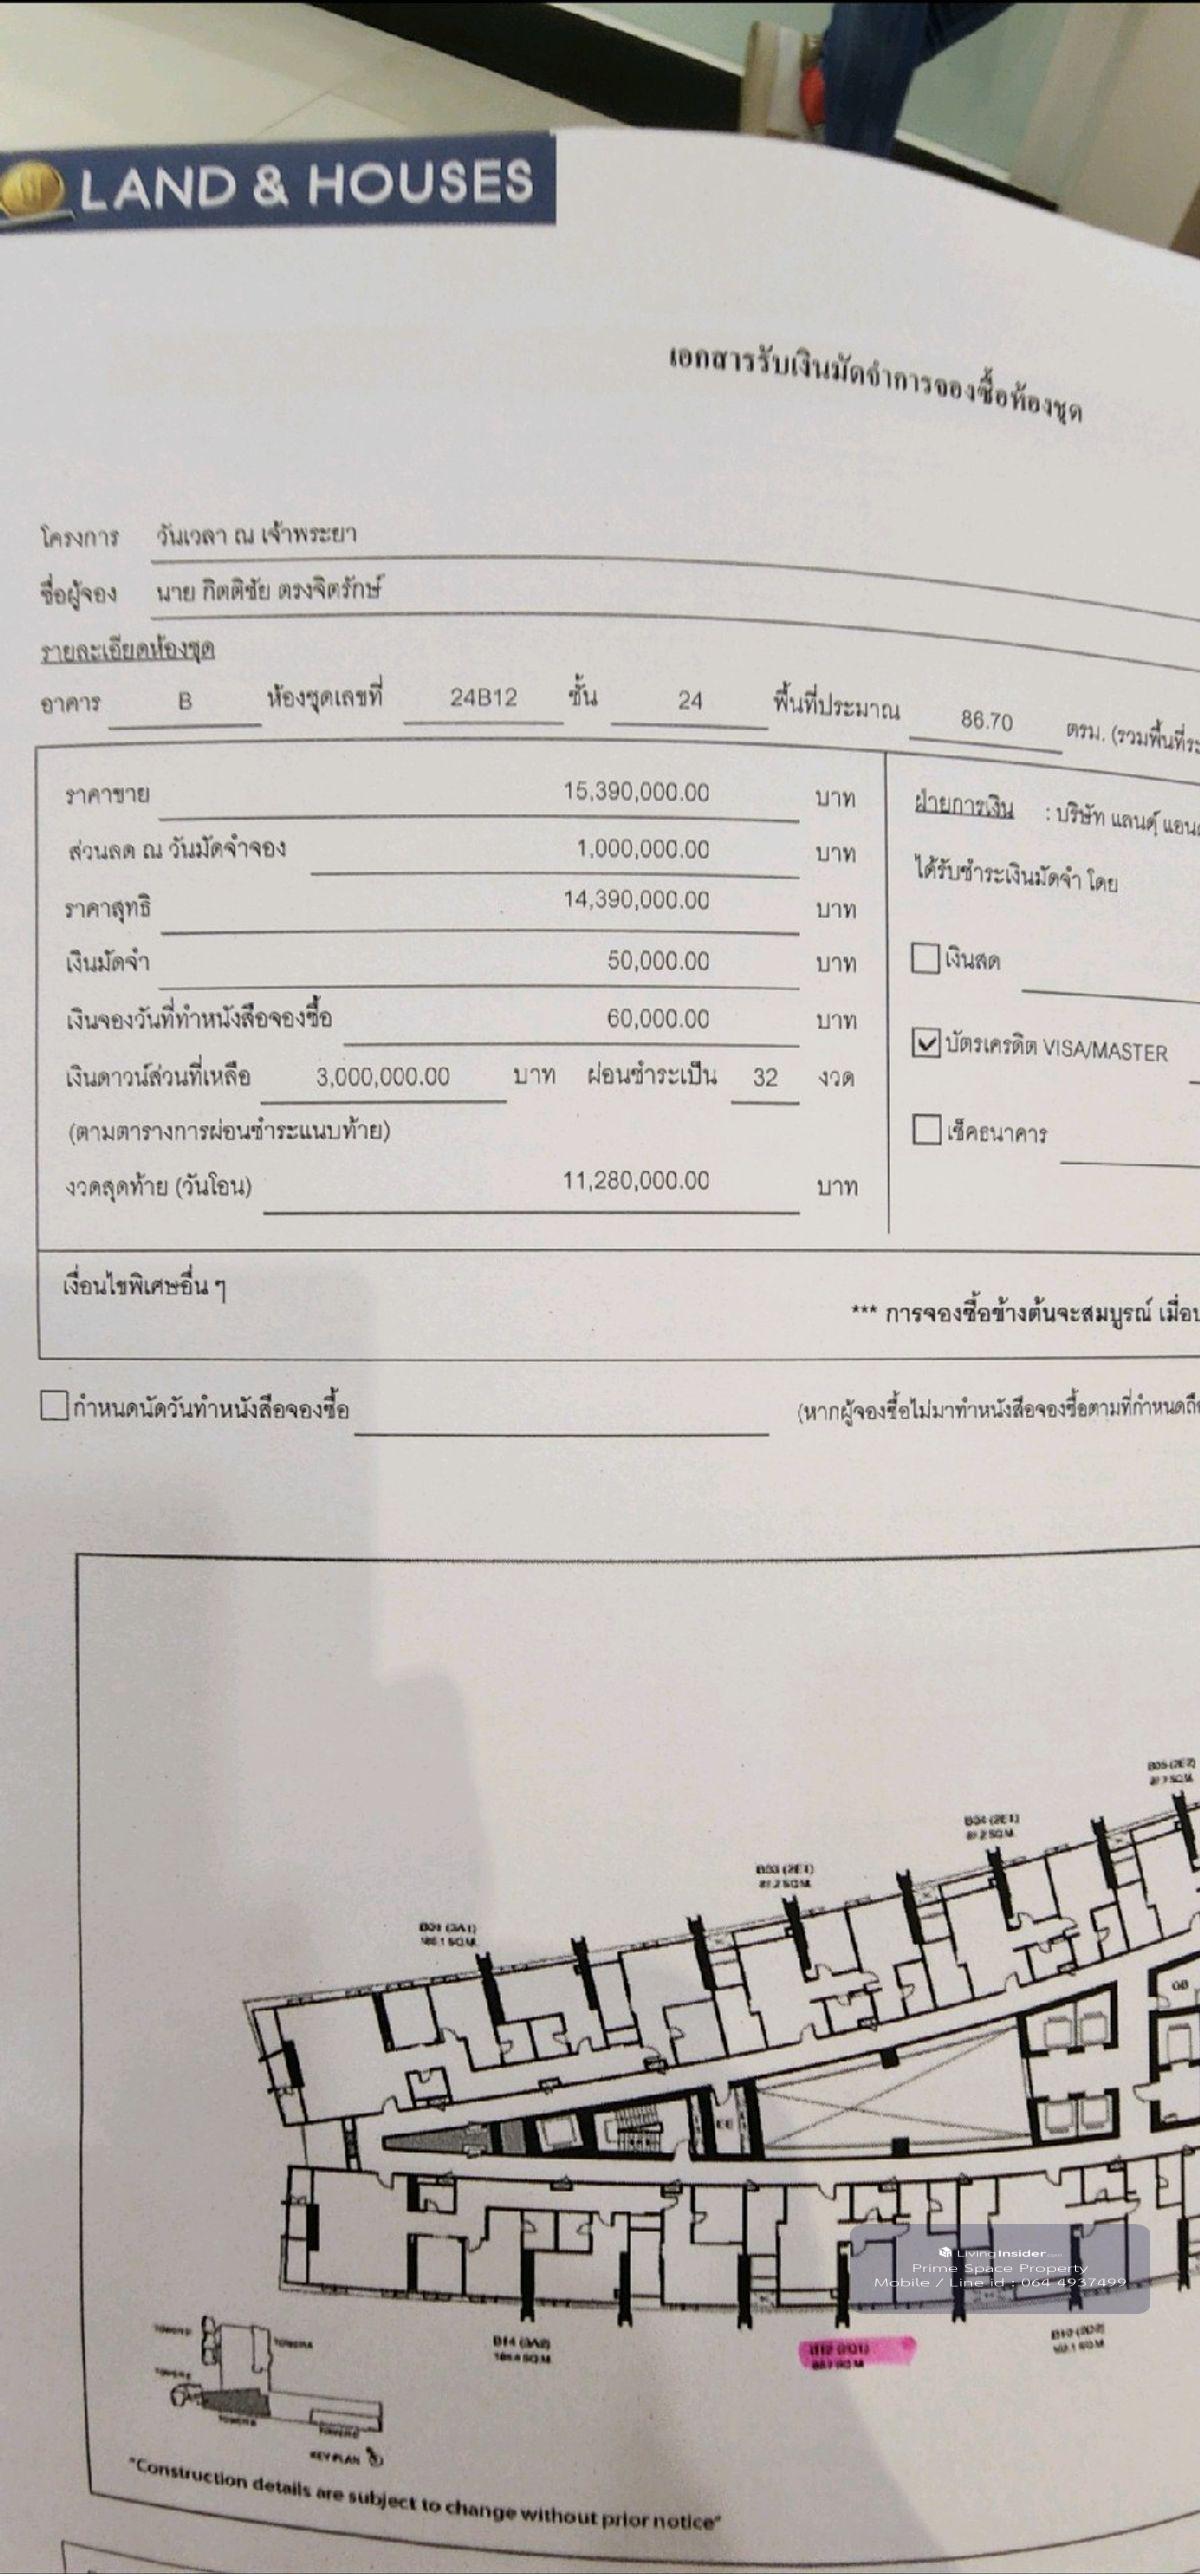 LAND & HOUSES
เอกสารรับเงินมัดจำการจองซื้อห้องชุด
โครงการ วันเวลา ณ เจ้าพระยา
ชื่อผู้จอง นาย กิตติชัย ตรงจิตรักษ์
รายละเอียดห้องชุด
อาคาร B ห้องชุดเลขที่ 24B12 ชั้น 24 พื้นที่ประมาณ 86.70 ตรม. (รวมพื้นที่ระ
ราคาขาย 15,390,000.00 บาท
ส่วนลด ณ วันมัดจำจอง 1,000,000.00 บาท
ราคาสุทธิ 14,390,000.00 บาท
เงินมัดจำ 50,000.00 บาท
เงินจองวันที่ทำหนังสือจองซื้อ 60,000.00 บาท
เงินดาวน์ส่วนที่เหลือ 3,000,000.00 บาท ผ่อนชำระเป็น 32 งวด
(ตามตารางการผ่อนชำระแนบท้าย)
งวดสุดท้าย (วันโอน) 11,280,000.00 บาท
ฝ่ายการเงิน : บริษัท แลนด์ แอน
ได้รับชำระเงินมัดจำ โดย
เงินสด
บัตรเครดิต VISA/MASTER
เช็คธนาคาร
เงื่อนไขพิเศษอื่น ๆ
*** การจองซื้อข้างต้นจะสมบูรณ์ เมื่อ
กำหนดนัดวันทำหนังสือจองซื้อ (หากผู้จองซื้อไม่มาทำหนังสือจองซื้อตามที่กำหนดถือ
B04 (2E1)
81.2 SQ.M.
B03 (2E1)
81.2 SQ.M.
LivingInsider.com
Prime Space Property
Mobile / Line id : 064 4937499
B14 (3A2)
B12 (2D1)
86.7 SQ.M.
KEY PLAN
"Construction details are subject to change without prior notice"